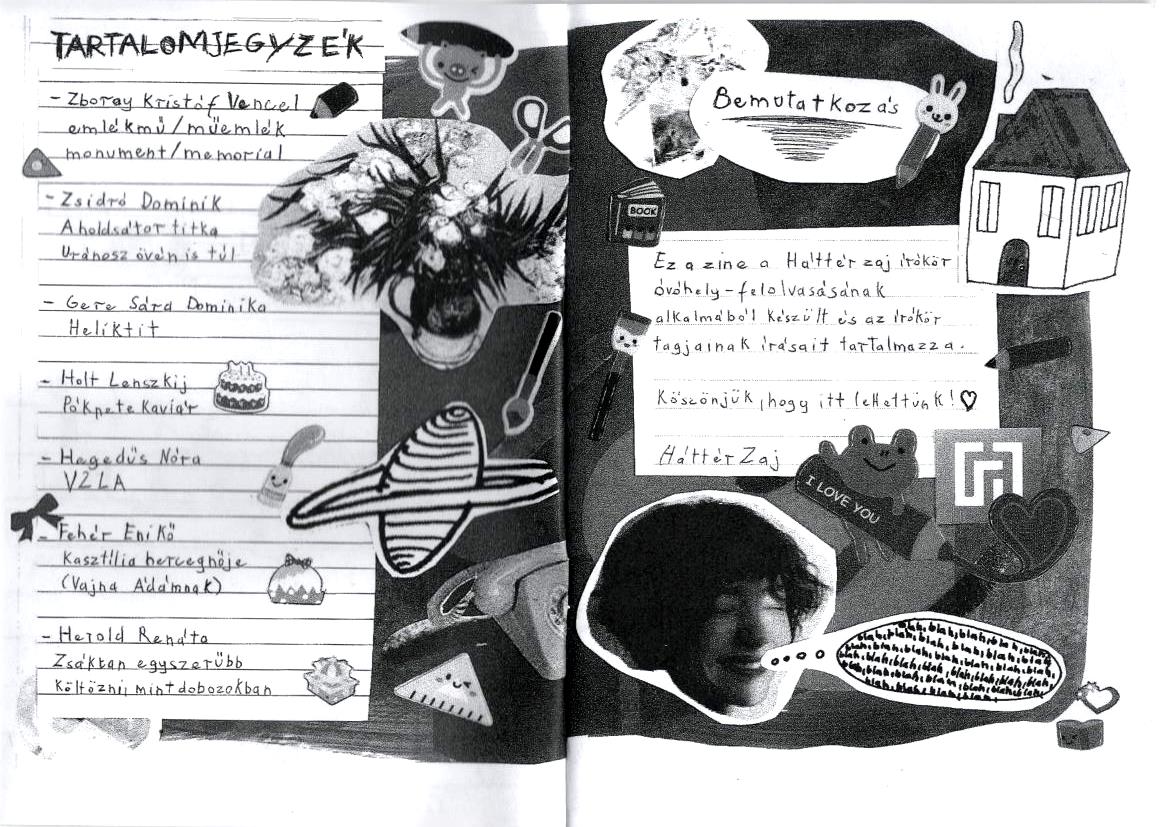 TARTALOMJEGYZÉK
- Zboray Kristóf Vencel
emlékmű/műemlék
monument/memorial
- Zsidró Dominik
A holdsátor titka
Uránosz övén is túl
- Gere Sára Dominika
Heliktit
- Holt Lenszkij
Pókpete Kaviár
- Hegedűs Nóra
VZLA
- Fehér Enikő
Kasztília hercegnője
(Vajna Ádámnak)
- Herold Renáta
Zsákban egyszerűbb
költözni, mint dobozokban
Bemutatkozás
BOOK
Ez a zine a Háttér zaj írókör
óvóhely-felolvasásának
alkalmából készült és az írókör
tagjainak írásait tartalmazza.
Köszönjük, hogy itt lehettünk! ♡
Háttér Zaj
I LOVE YOU
blah, blah, blah, blah, blah,
blah, blah, blah, blah, blah, blah,
blah, blah, blah, blah, blah, blah,
blah, blah, blah, blah, blah, blah,
blah, blah, blah, blah, blah, blah,
blah, blah, blah, blah, blah,